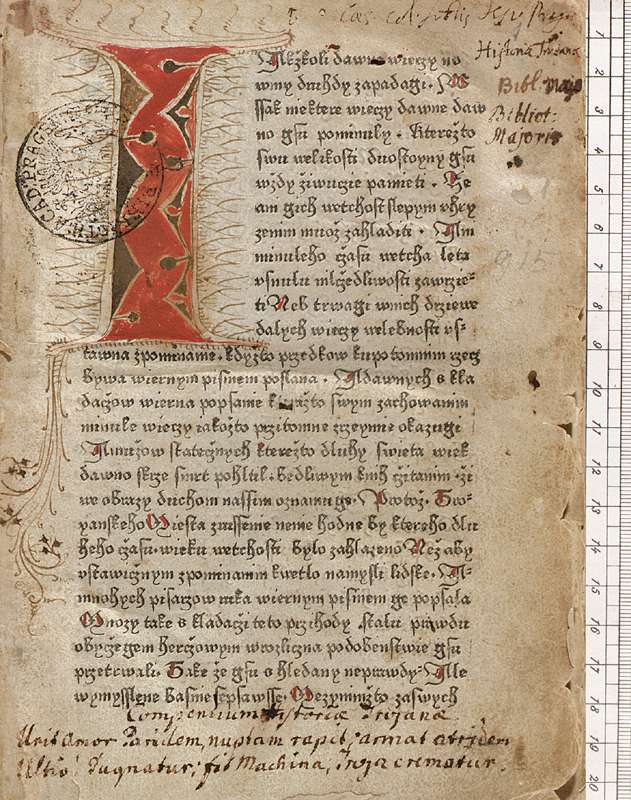 Historia Trojana
Bibl. maj.
Bibliot:
Majoris
Akžkoli dawno wieczy no
winy druhdy zapadagi. W
ssak niektere wieczy dawne daw
no gsu pominuly. Kterežto
swu welikosti duostoyny gsu
wždy žiwucie pamieti. Že
am gich wetchost slepym vhry
zenim muož zahladiti. Am
minuleho cžasu wetcha leta
vsnulu mlcžedliwosti zawrzie-
ti Neb trwagi wnich drziewe
dalych wieczy welebnosti vs-
tawna zpominanie. kdyžto przedkow kupotomnim rzecz
bywa wiernym pismem poslana. A dawnych skla
dacžow wierna popsanie kterižto swym zachowanim
minule wieczy jakožto przitomne zrzeymie okazugi
A mužow statecžnych kterežto dluhy swieta wiek
dawno skrze smrt pohltil. bedliwym knih cžitanim. ži
we obrazy duchom nassim oznamuge. Protož. Tro-
yanskeho Miesta zrussenie nenie hodne by kterého dlu
heho cžasu. wieku wetchosti bylo zahlazeno Než aby
vstawicžnym zpominanim kwetlo namysli lidske. A
mnohych pisarzow ruka wiernym pismem ge popsala
Mnozy take skladacži teto przihody stalu prawdu
obycžegem herczowym wrozlicžna podobenstwie gsu
przetrwali. Take že gsu shledany neprawdy. Ale
wymysslene basnie sepsawsse. Mezynimižto zaswych
Compendium historiæ Trojanæ
Urit Amor Paridem, nuptam rapit, armat Atridem
Ultio, Pugnatur; fit Machina, Troja crematur.
1
2
3
4
5
6
7
8
9
10
11
12
13
14
15
16
17
18
19
20